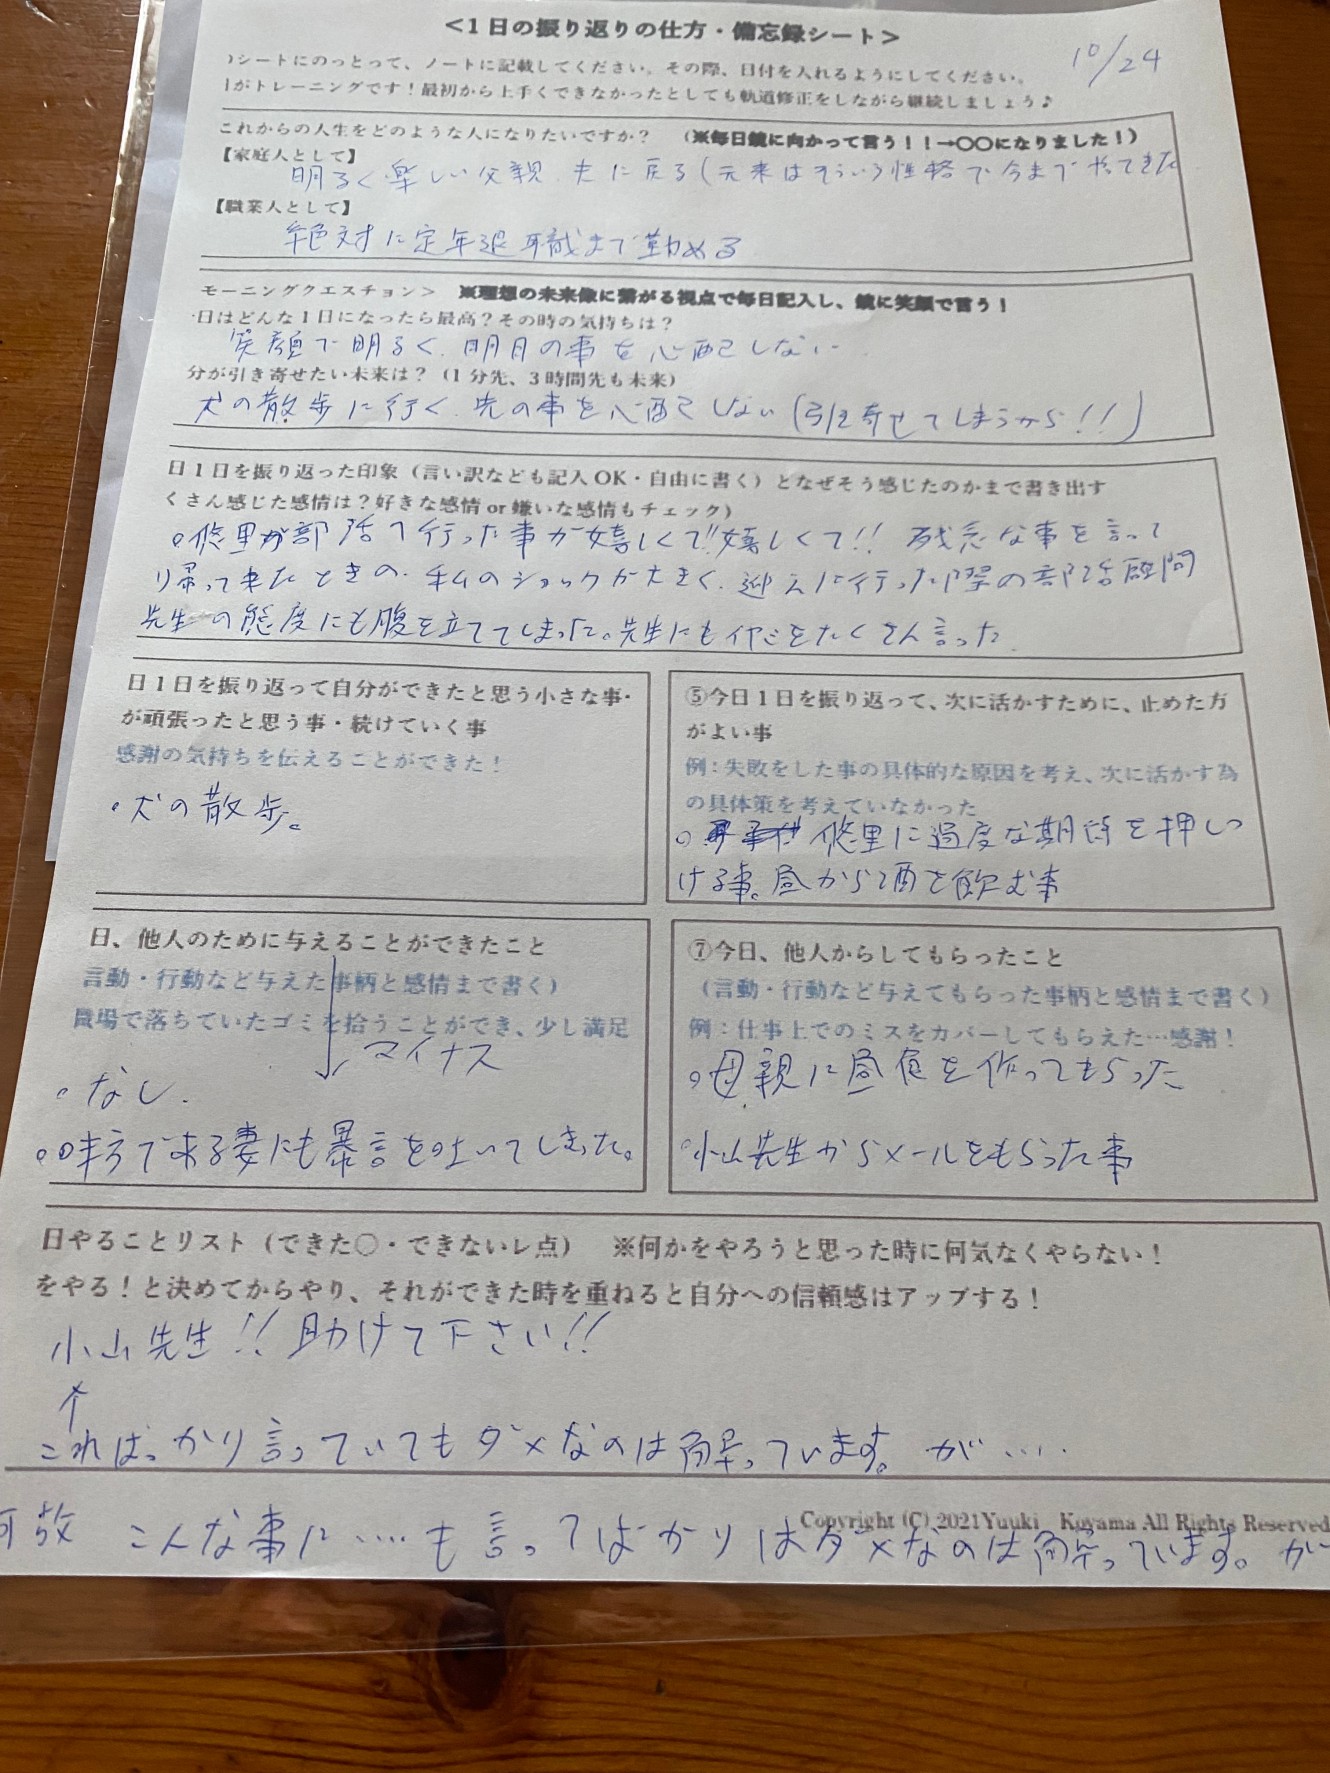 <1日の振り返りの仕方・備忘録シート>
10/24
シートにのっとって、ノートに記載してください。その際、日付を入れるようにしてください。
がトレーニングです！最初から上手くできなかったとしても軌道修正をしながら継続しましょう♪
これからの人生をどのような人になりたいですか？　（※毎日鏡に向かって言う！！→〇〇になりました！）
【家庭人として】
明るく楽しい父親、夫に戻る（元来はそういう性格で今までやってきた
【職業人として】
絶対に定年退職まで勤める
モーニングクエスチョン＞　※理想の未来像に繋がる視点で毎日記入し、鏡に笑顔で言う！
日はどんな１日になったら最高？その時の気持ちは？
笑顔で明るく、明日の事を心配しない
分が引き寄せたい未来は？（１分先、３時間先も未来）
犬の散歩に行く、先の事を心配しない（引き寄せてしまうから！！）
日１日を振り返った印象（言い訳なども記入OK・自由に書く）となぜそう感じたのかまで書き出す
くさん感じた感情は？好きな感情or嫌いな感情もチェック）
。悠里が部活へ行った事が嬉しくて嬉しくて!! 残念な事を言って
帰って来たときの、私のショックが大きく、迎えに行った際の部活顧問
先生の態度にも腹を立ててしまった。先生にもイヤミをたくさん言った
日１日を振り返って自分ができたと思う小さな事・
が頑張ったと思う事・続けていく事
感謝の気持ちを伝えることができた！
・犬の散歩。
⑤今日１日を振り返って、次に活かすために、止めた方
がよい事
例：失敗をした事の具体的な原因を考え、次に活かす為
の具体策を考えていなかった
。悠里に過度な期待を押しつ
ける事。昼から酒を飲む事
日、他人のために与えることができたこと
言動・行動など与えた事柄と感情まで書く）
職場で落ちていたゴミを拾うことができ、少し満足
マイナス
。なし
。味方で来る妻にも暴言を吐いてしまった。
⑦今日、他人からしてもらったこと
（言動・行動など与えてもらった事柄と感情まで書く）
例：仕事上でのミスをカバーしてもらえた…感謝！
。母親に昼食を作ってもらった
・小山先生からメールをもらった事
日やることリスト（できた〇・できないレ点）　※何かをやろうと思った時に何気なくやらない！
をやる！と決めてからやり、それができた時を重ねると自分への信頼感はアップする！
小山先生!! 助けて下さい!!
↑
こればっかり言っていてもダメなのは解っています。が‥‥
Copyright (C) 2021Yuuki　Koyama All Rights Reserved
何故 こんな事に‥‥も言ってばかりはダメなのは解っています。が